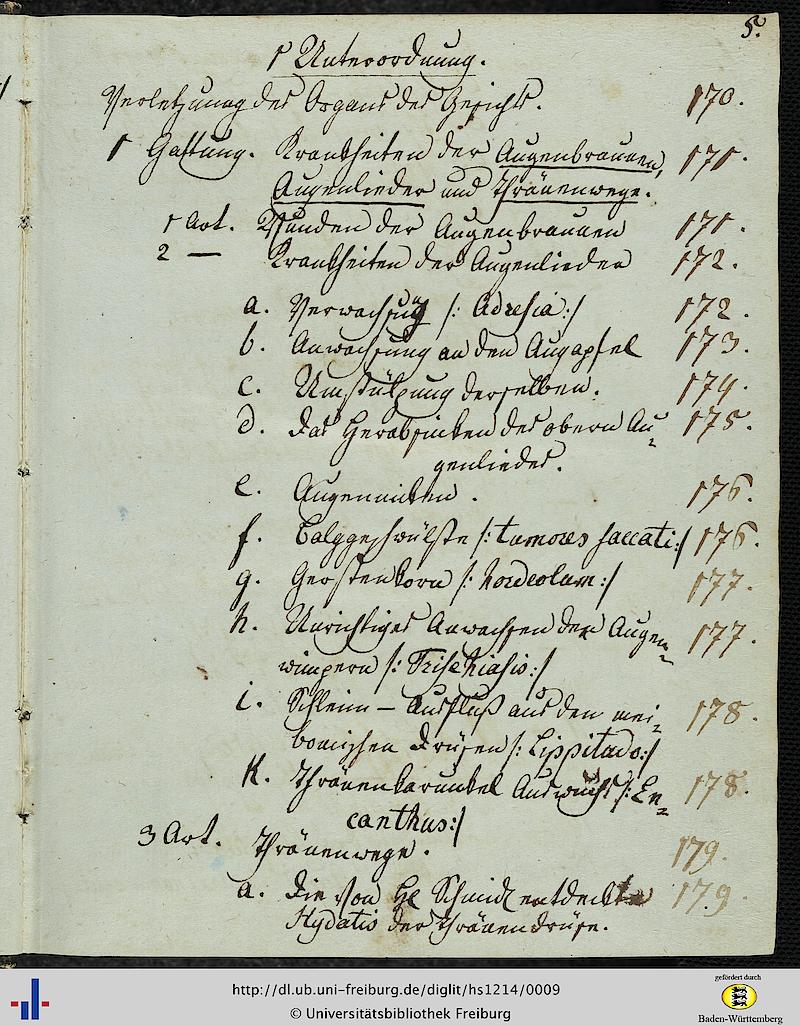 5.
1 Unterordnung.
Verletzung des Organs des Gesichts. 170.
1 Gattung. Krankheiten der Augenbrauen, 171.
Augenlieder und Thränenwege.
1 Art. Wunden der Augenbrauen 171.
2 — Krankheiten der Augenlieder 172.
a. Verwachsung /: Adresia :/ 172.
b. Anwachsung an den Augapfel 173.
c. Umstülpung derselben. 174.
d. Das Herabsinken des obern Au- 175.
genliedes.
e. Augennicken. 176.
f. Balggeschwülste /: tumores saccati :/ 176.
g. Gerstenkorn /: hordeolum :/ 177.
h. Unrichtiges Anwachsen der Augen- 177.
wimpern /: Trischiasis :/
i. Schleim – Ausfluß aus den mei- 178.
bomischen Drüsen /: Lippitudo :/
k. Thränenkarunkel Auswuchs /: En- 178.
canthus :/
3 Art. Thränenwege. 179.
a. Die von H. Schmidt entdeckte 179.
Hydatis der Thränendrüse.
http://dl.ub.uni-freiburg.de/diglit/hs1214/0009
© Universitätsbibliothek Freiburg
gefördert durch
Baden-Württemberg